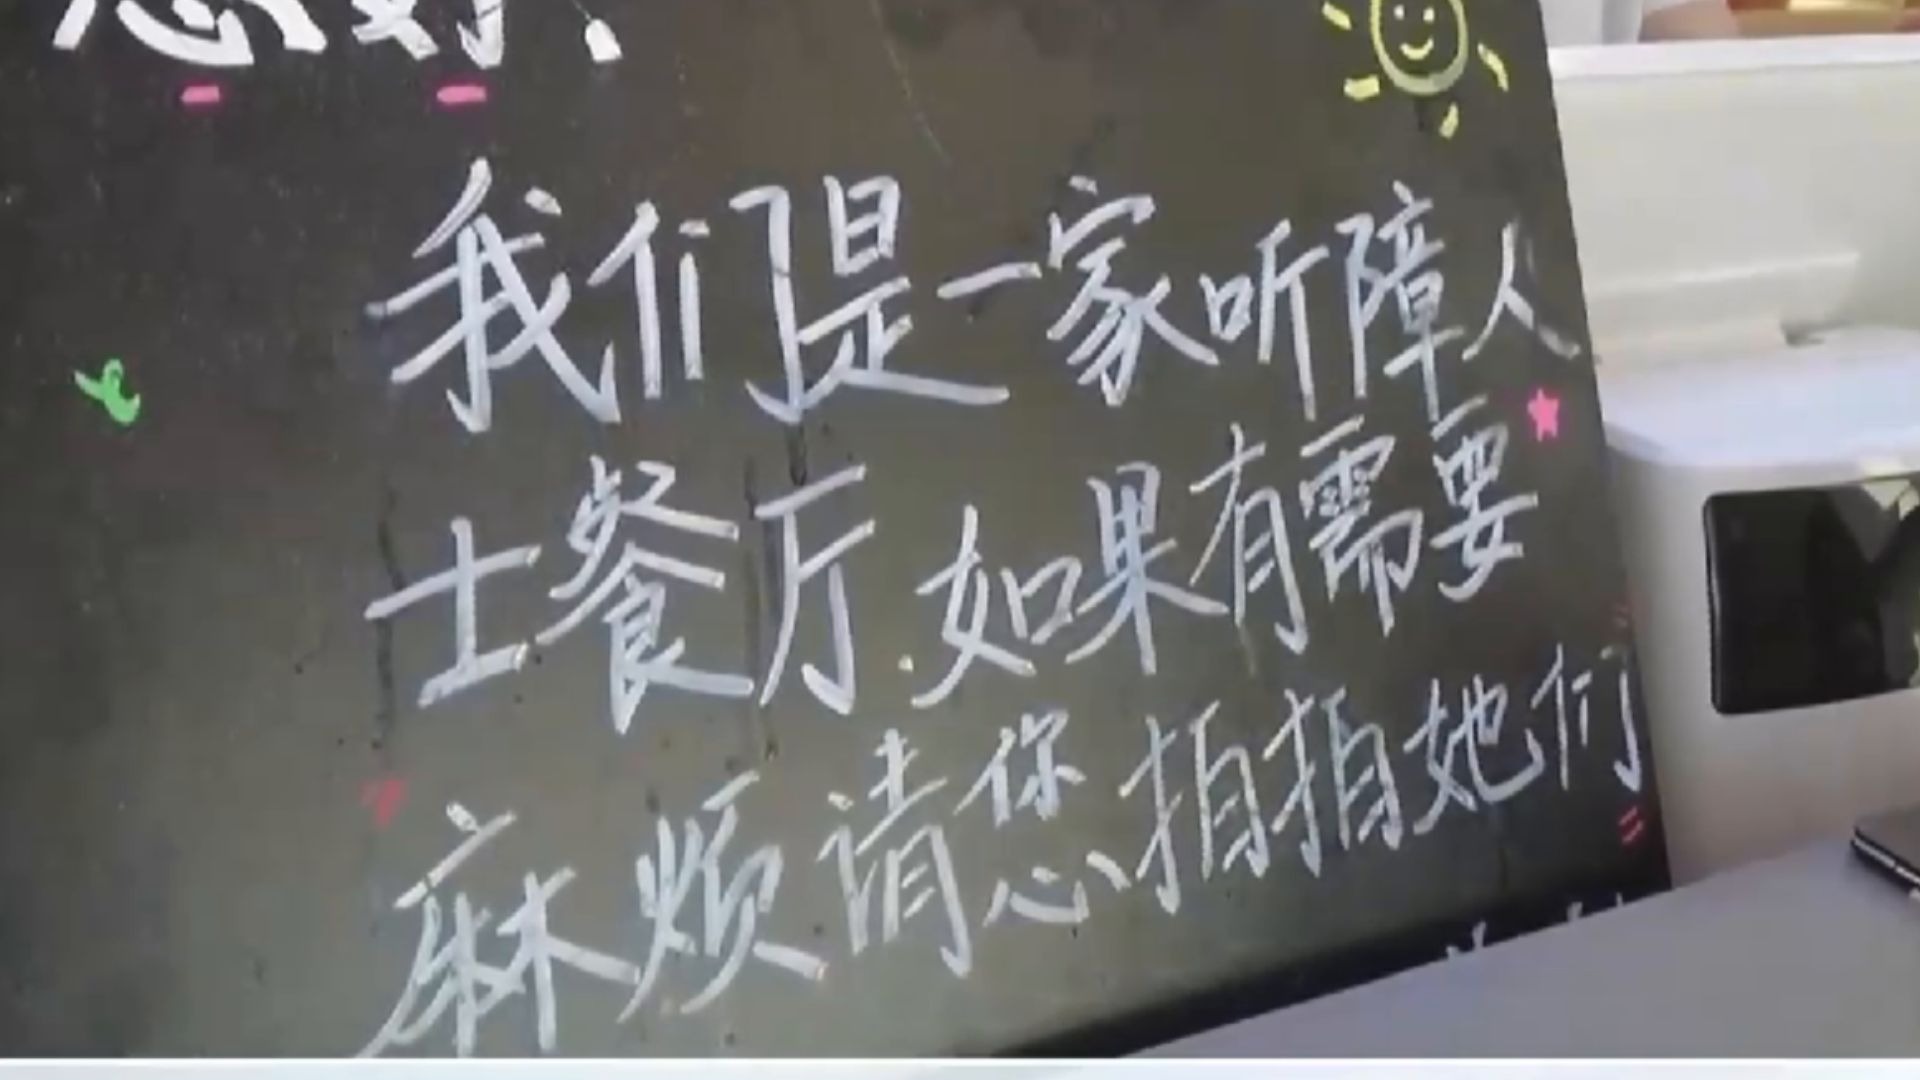 您好:
我们是一家听障人
士餐厅.如果有需要
麻烦请您拍拍她们